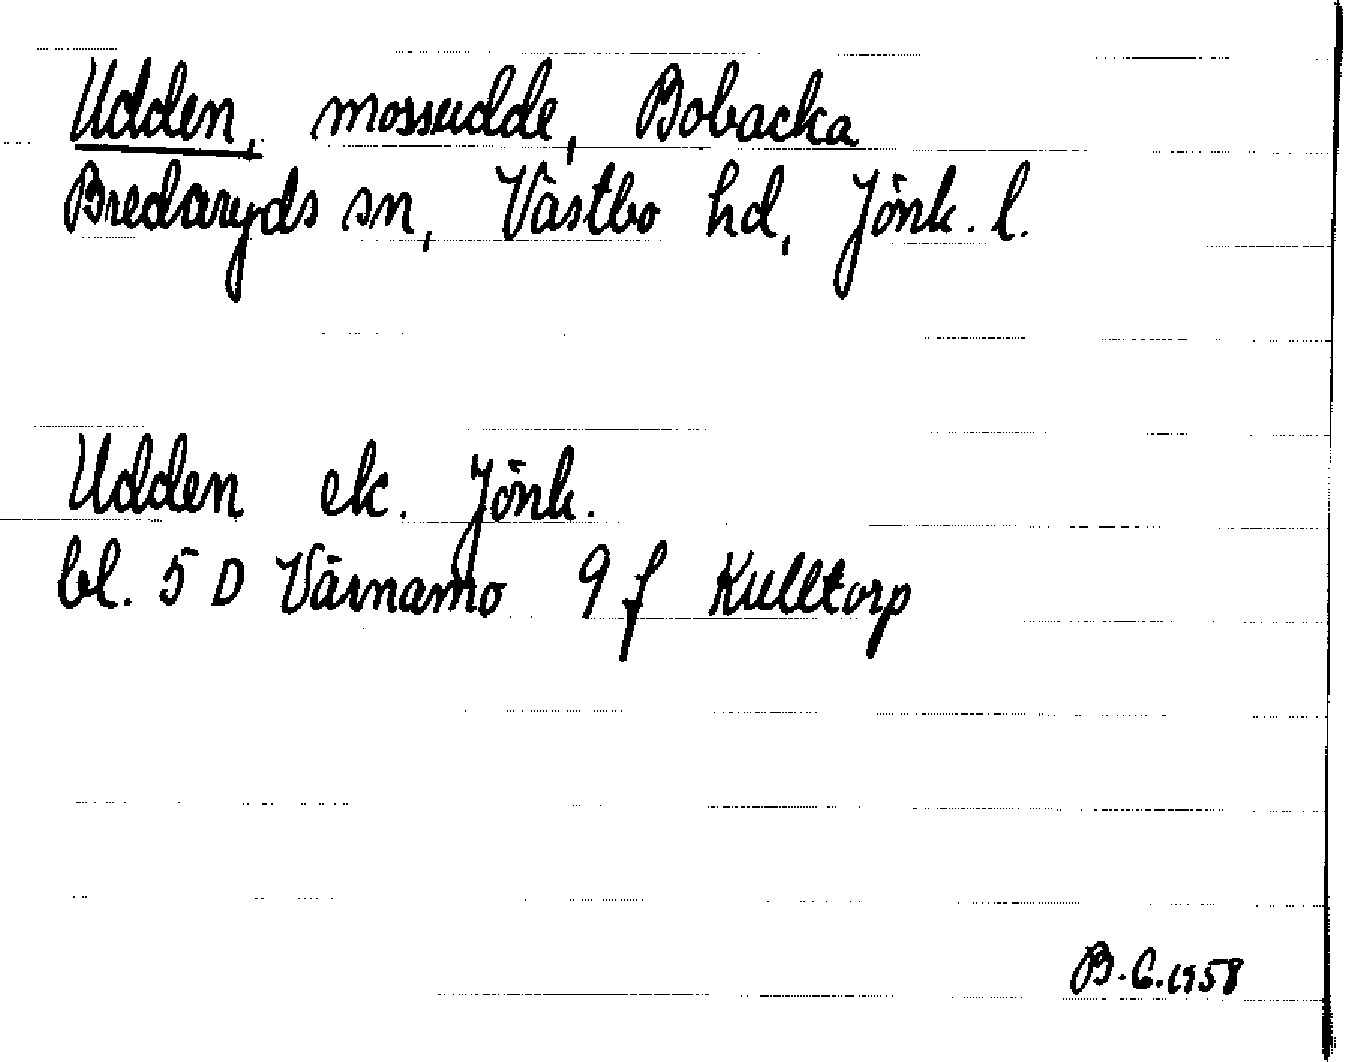 Udden, mossudde, Bobacka
Bredaryds sn, Västbo hd, Jönk. l.
Udden ek. Jönk.
bl. 5 D Värnamo 9 f Kulltorp
B. G. 1958